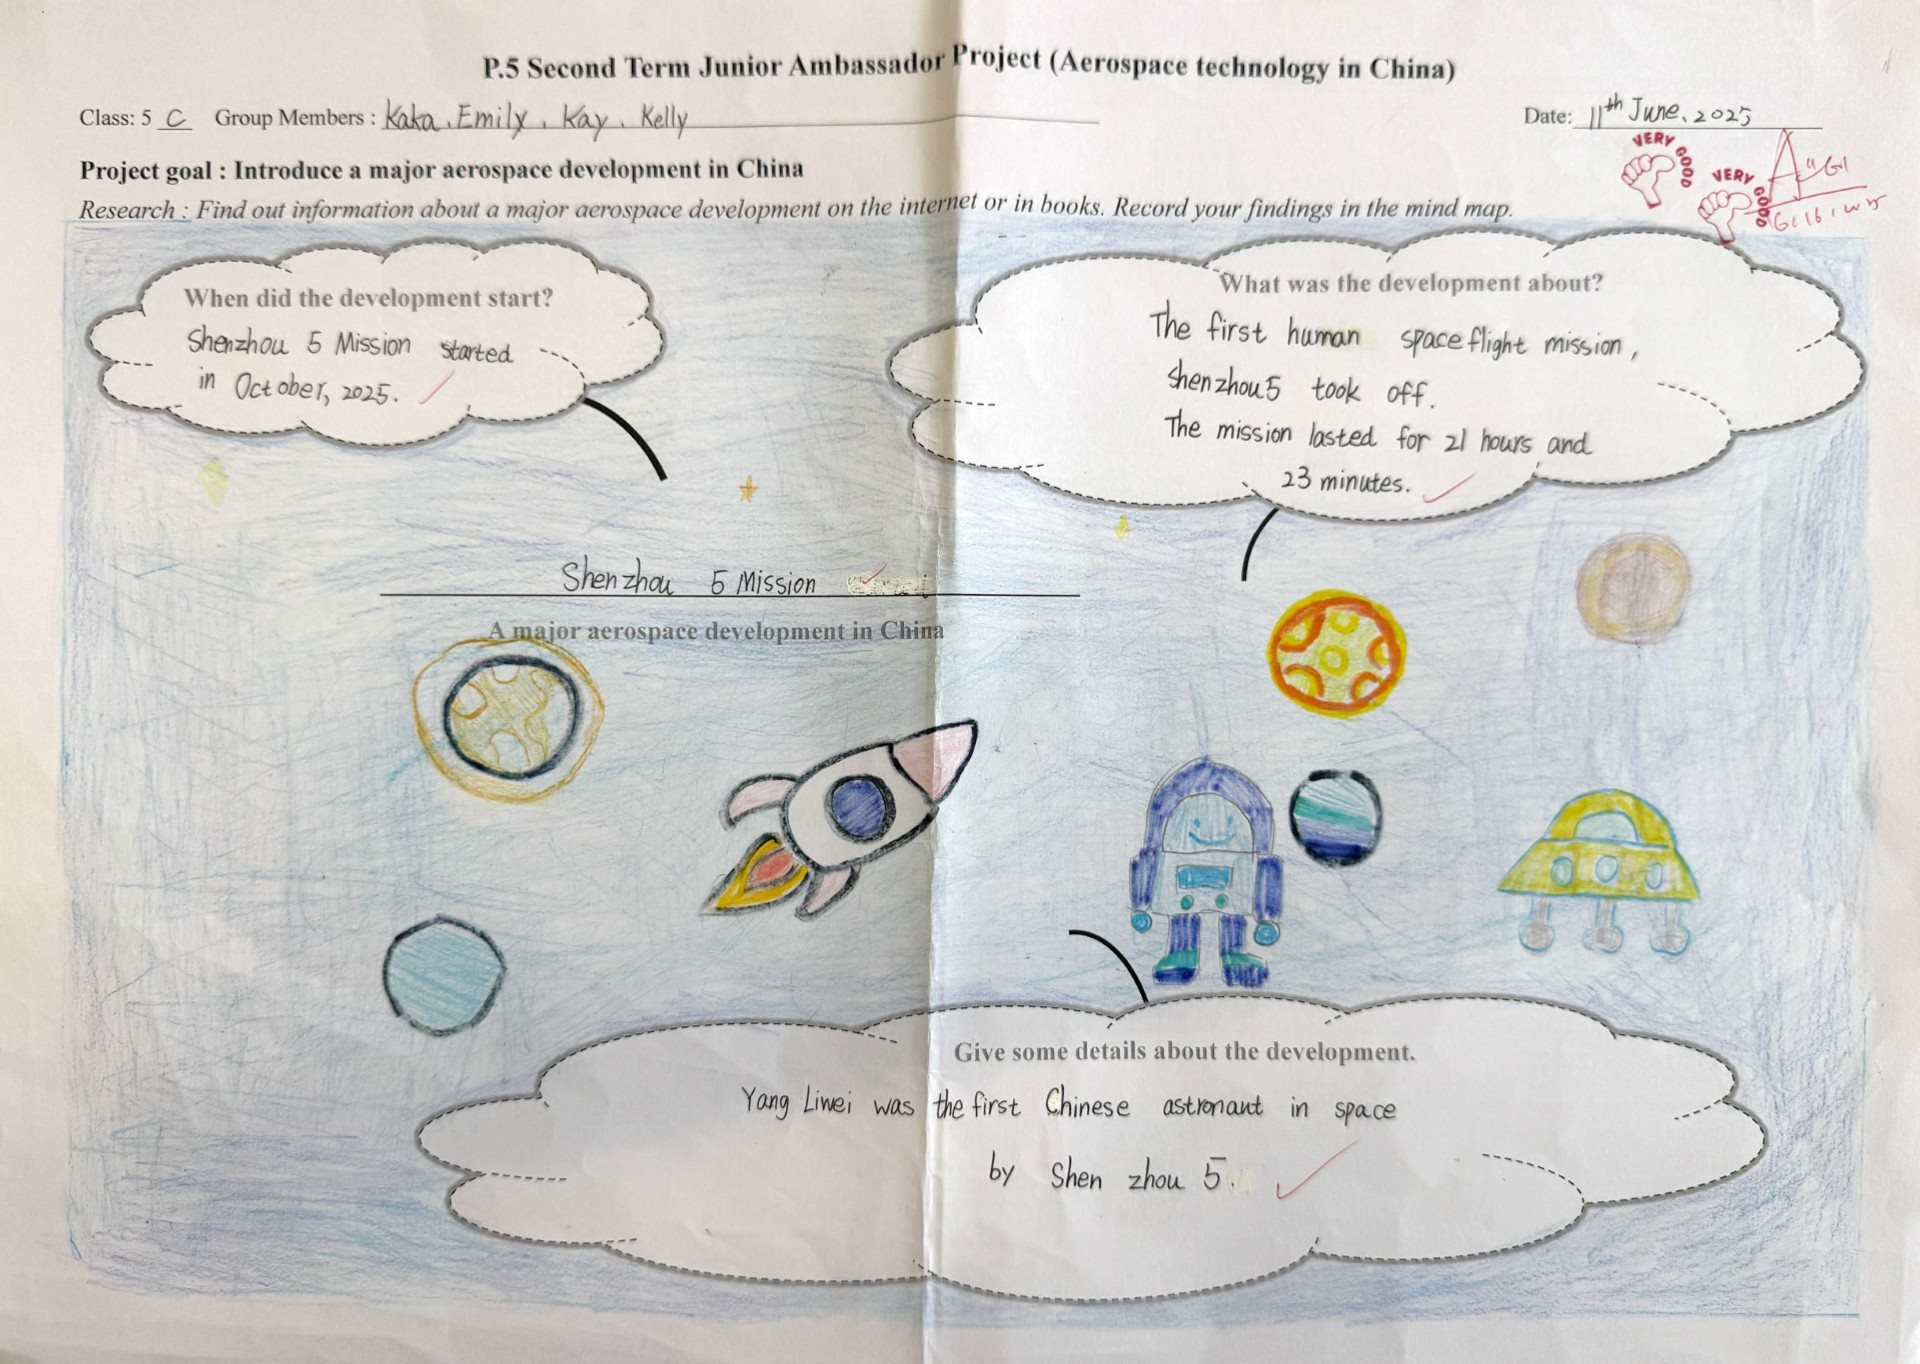 P.5 Second Term Junior Ambassador Project (Aerospace technology in China)
Class: 5 C Group Members : Kaka, Emily, Kay, Kelly
Date: 11th June, 2025
VERY GOOD
VERY GOOD
Project goal : Introduce a major aerospace development in China
Research : Find out information about a major aerospace development on the internet or in books. Record your findings in the mind map.
When did the development start?
Shenzhou 5 Mission started
in October, 2025.
What was the development about?
The first human spaceflight mission,
Shenzhou5 took off.
The mission lasted for 21 hours and
23 minutes.
Shenzhou 5 Mission
A major aerospace development in China
Give some details about the development.
Yang Liwei was the first Chinese astronaut in space
by Shen zhou 5.